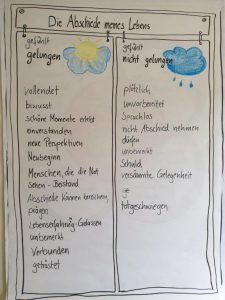 Die Abschiede meines Lebens
gefühlt
gelungen
vollendet
bewusst
schöne Momente erlebt
einverstanden
neue Perspektiven
Neubeginn
Menschen, die die Not
sehen - Beistand
Abschiede können bereichern,
prägen
Lebenserfahrung - Gelassen
unbemerkt
Verbunden
getröstet
gefühlt
nicht gelungen
plötzlich
unvorbereitet
Sprachlos
nicht Abschied nehmen
dürfen
unbemerkt
Schuld
versäumte Gelegenheit
totgeschwiegen